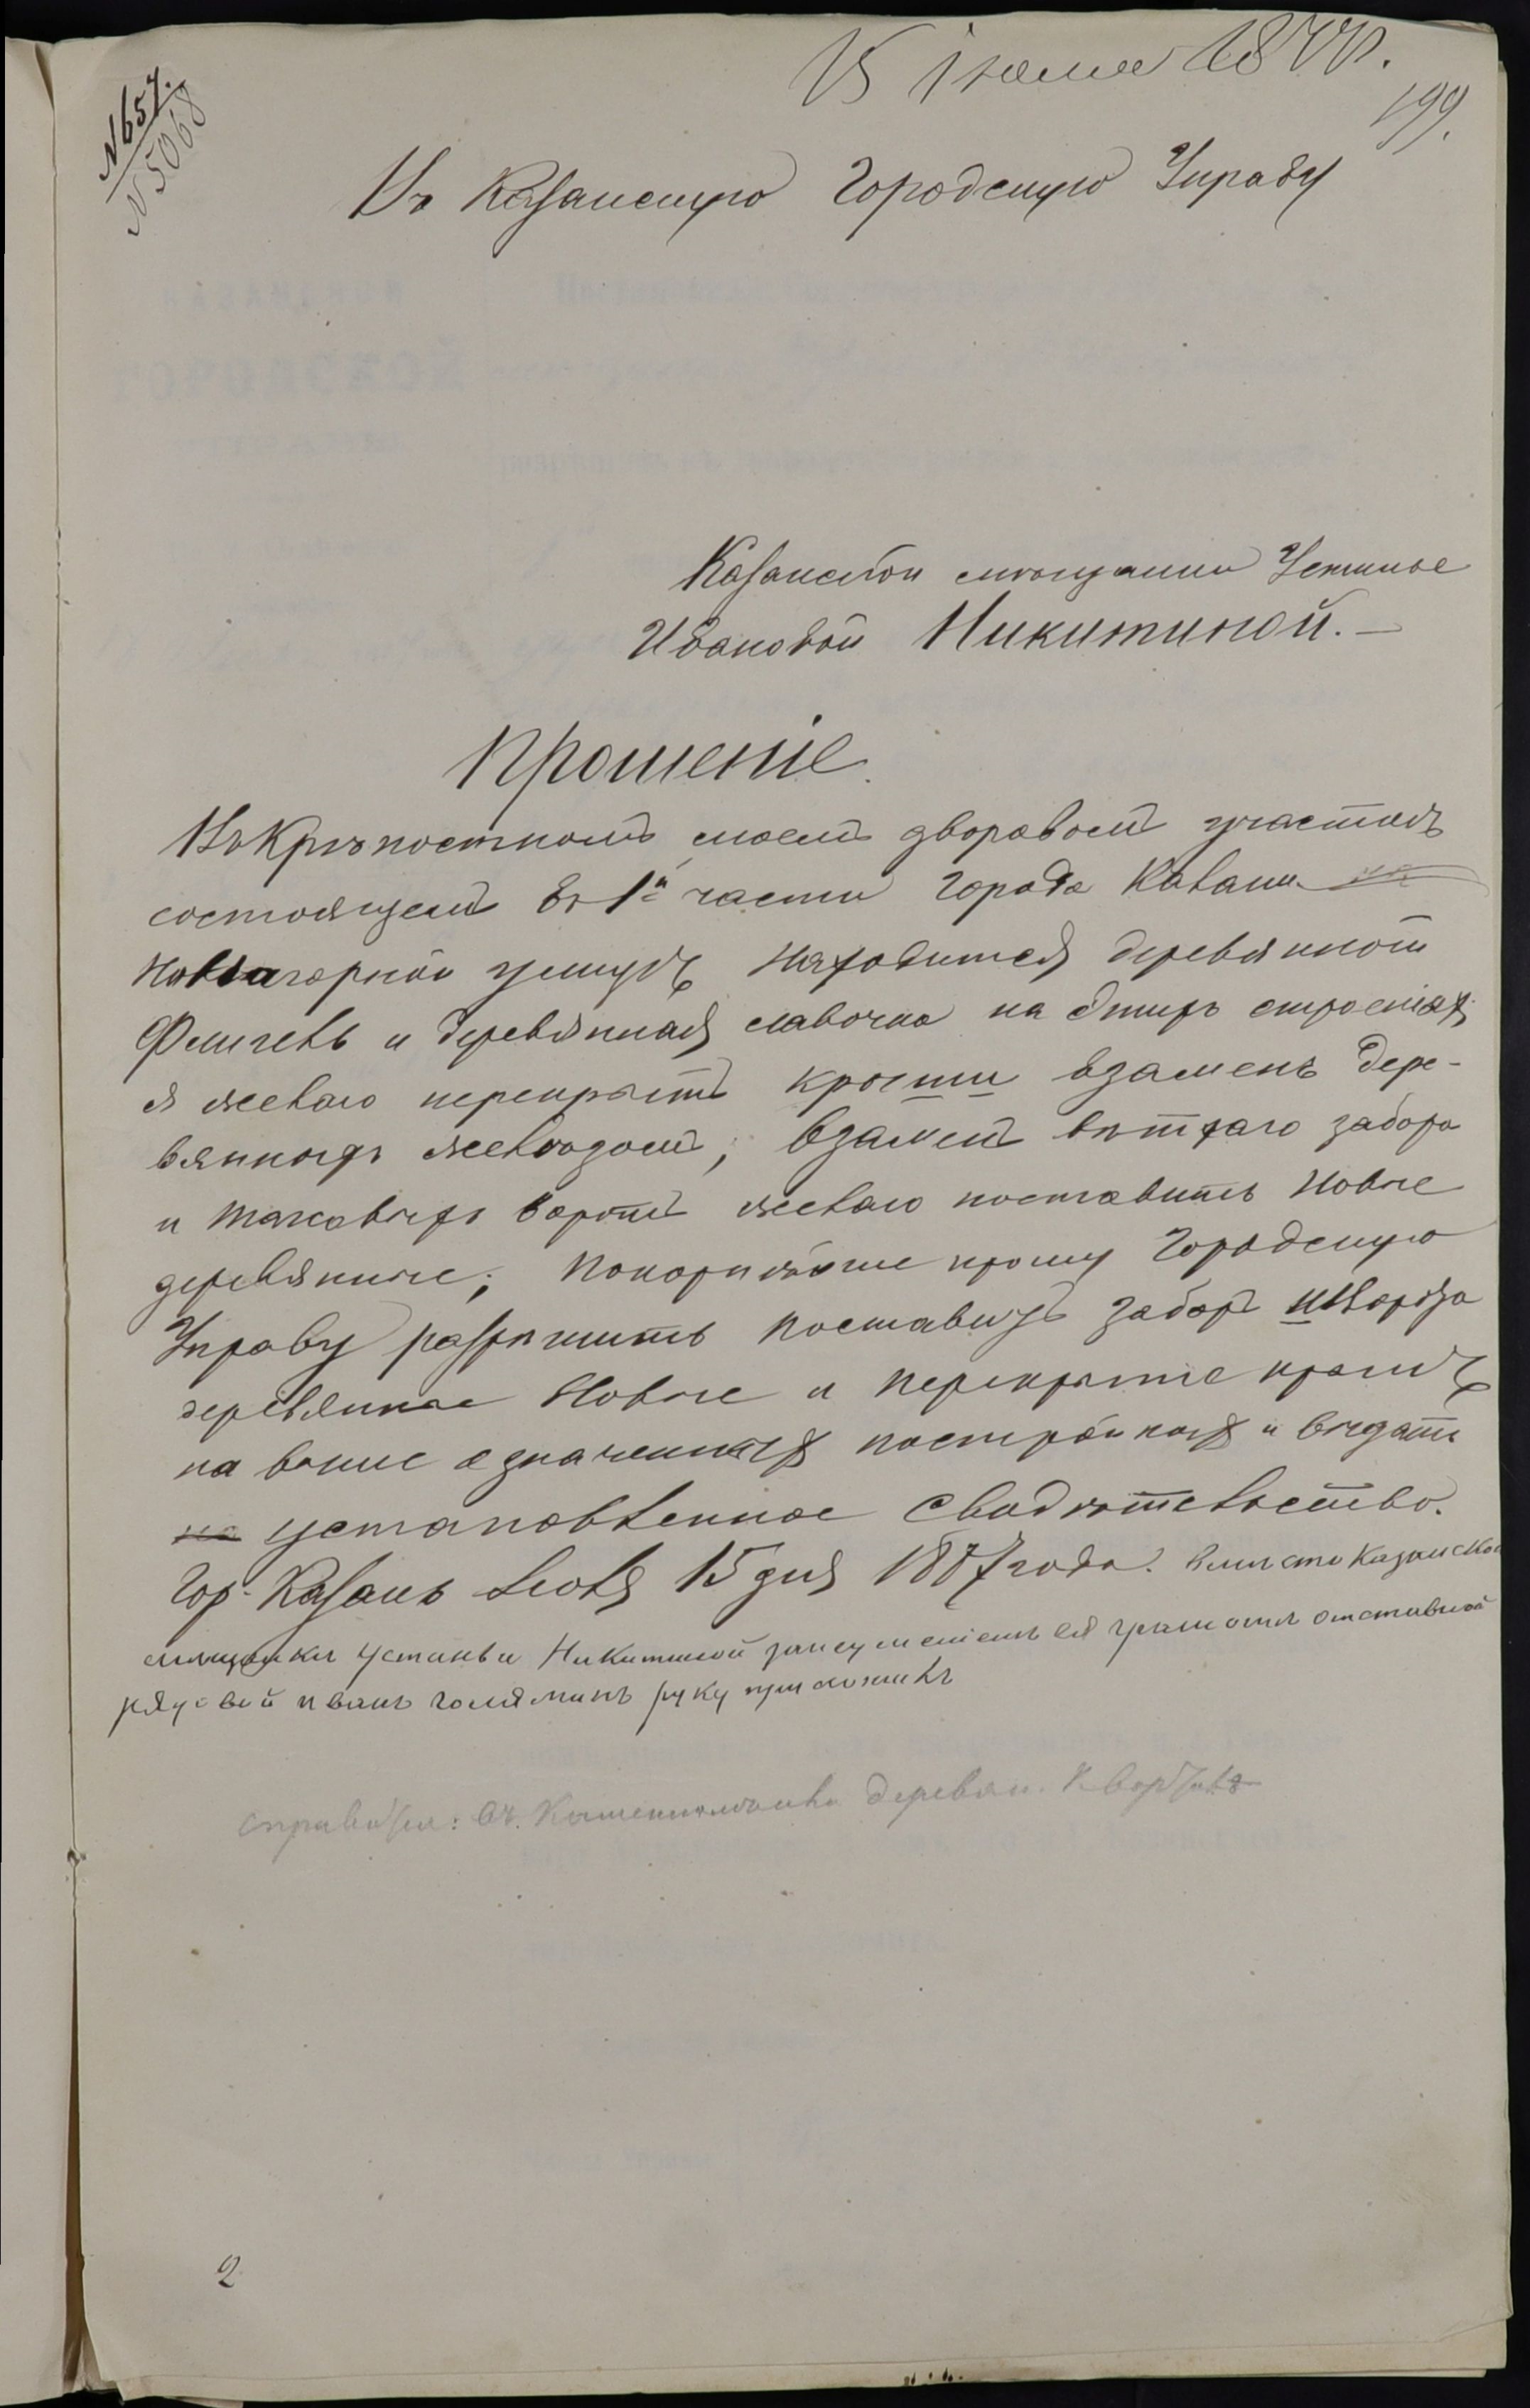 15 Іюля 1877.
199.
№657.
№5068
Въ Казанскую Городскую Управу
Казанской мѣщанки Устиньи
Ивановой Никитиной.—
Прошеніе.
Въ Крѣпостномъ моемъ дворовомъ участкѣ
состоящемъ въ 1й части города Казани на
находится деревянной
Флигель и деревянная лавочка на этихъ строеніях
я желаю перекрыть крыши взаменъ дере-
вянныхъ железомъ; взаменъ ветхаго забора
и таковыхъ воротъ желаю поставить новые
деревянные; Покорнейше прошу Городскую
Управу разрешить поставить заборъ и ворота
деревянные новые и перекрытie крышъ
на выше означенныхъ постройкахъ и выдать
на установленное Свидѣтельство.
Гор. Казань Іюля 15 дня 1877 года. вместо Казанской
мещанки Устиньи Никитиной за неумениемъ ея грамоте отставной
рядовой иванъ рукУ приложилъ
деревян.
2